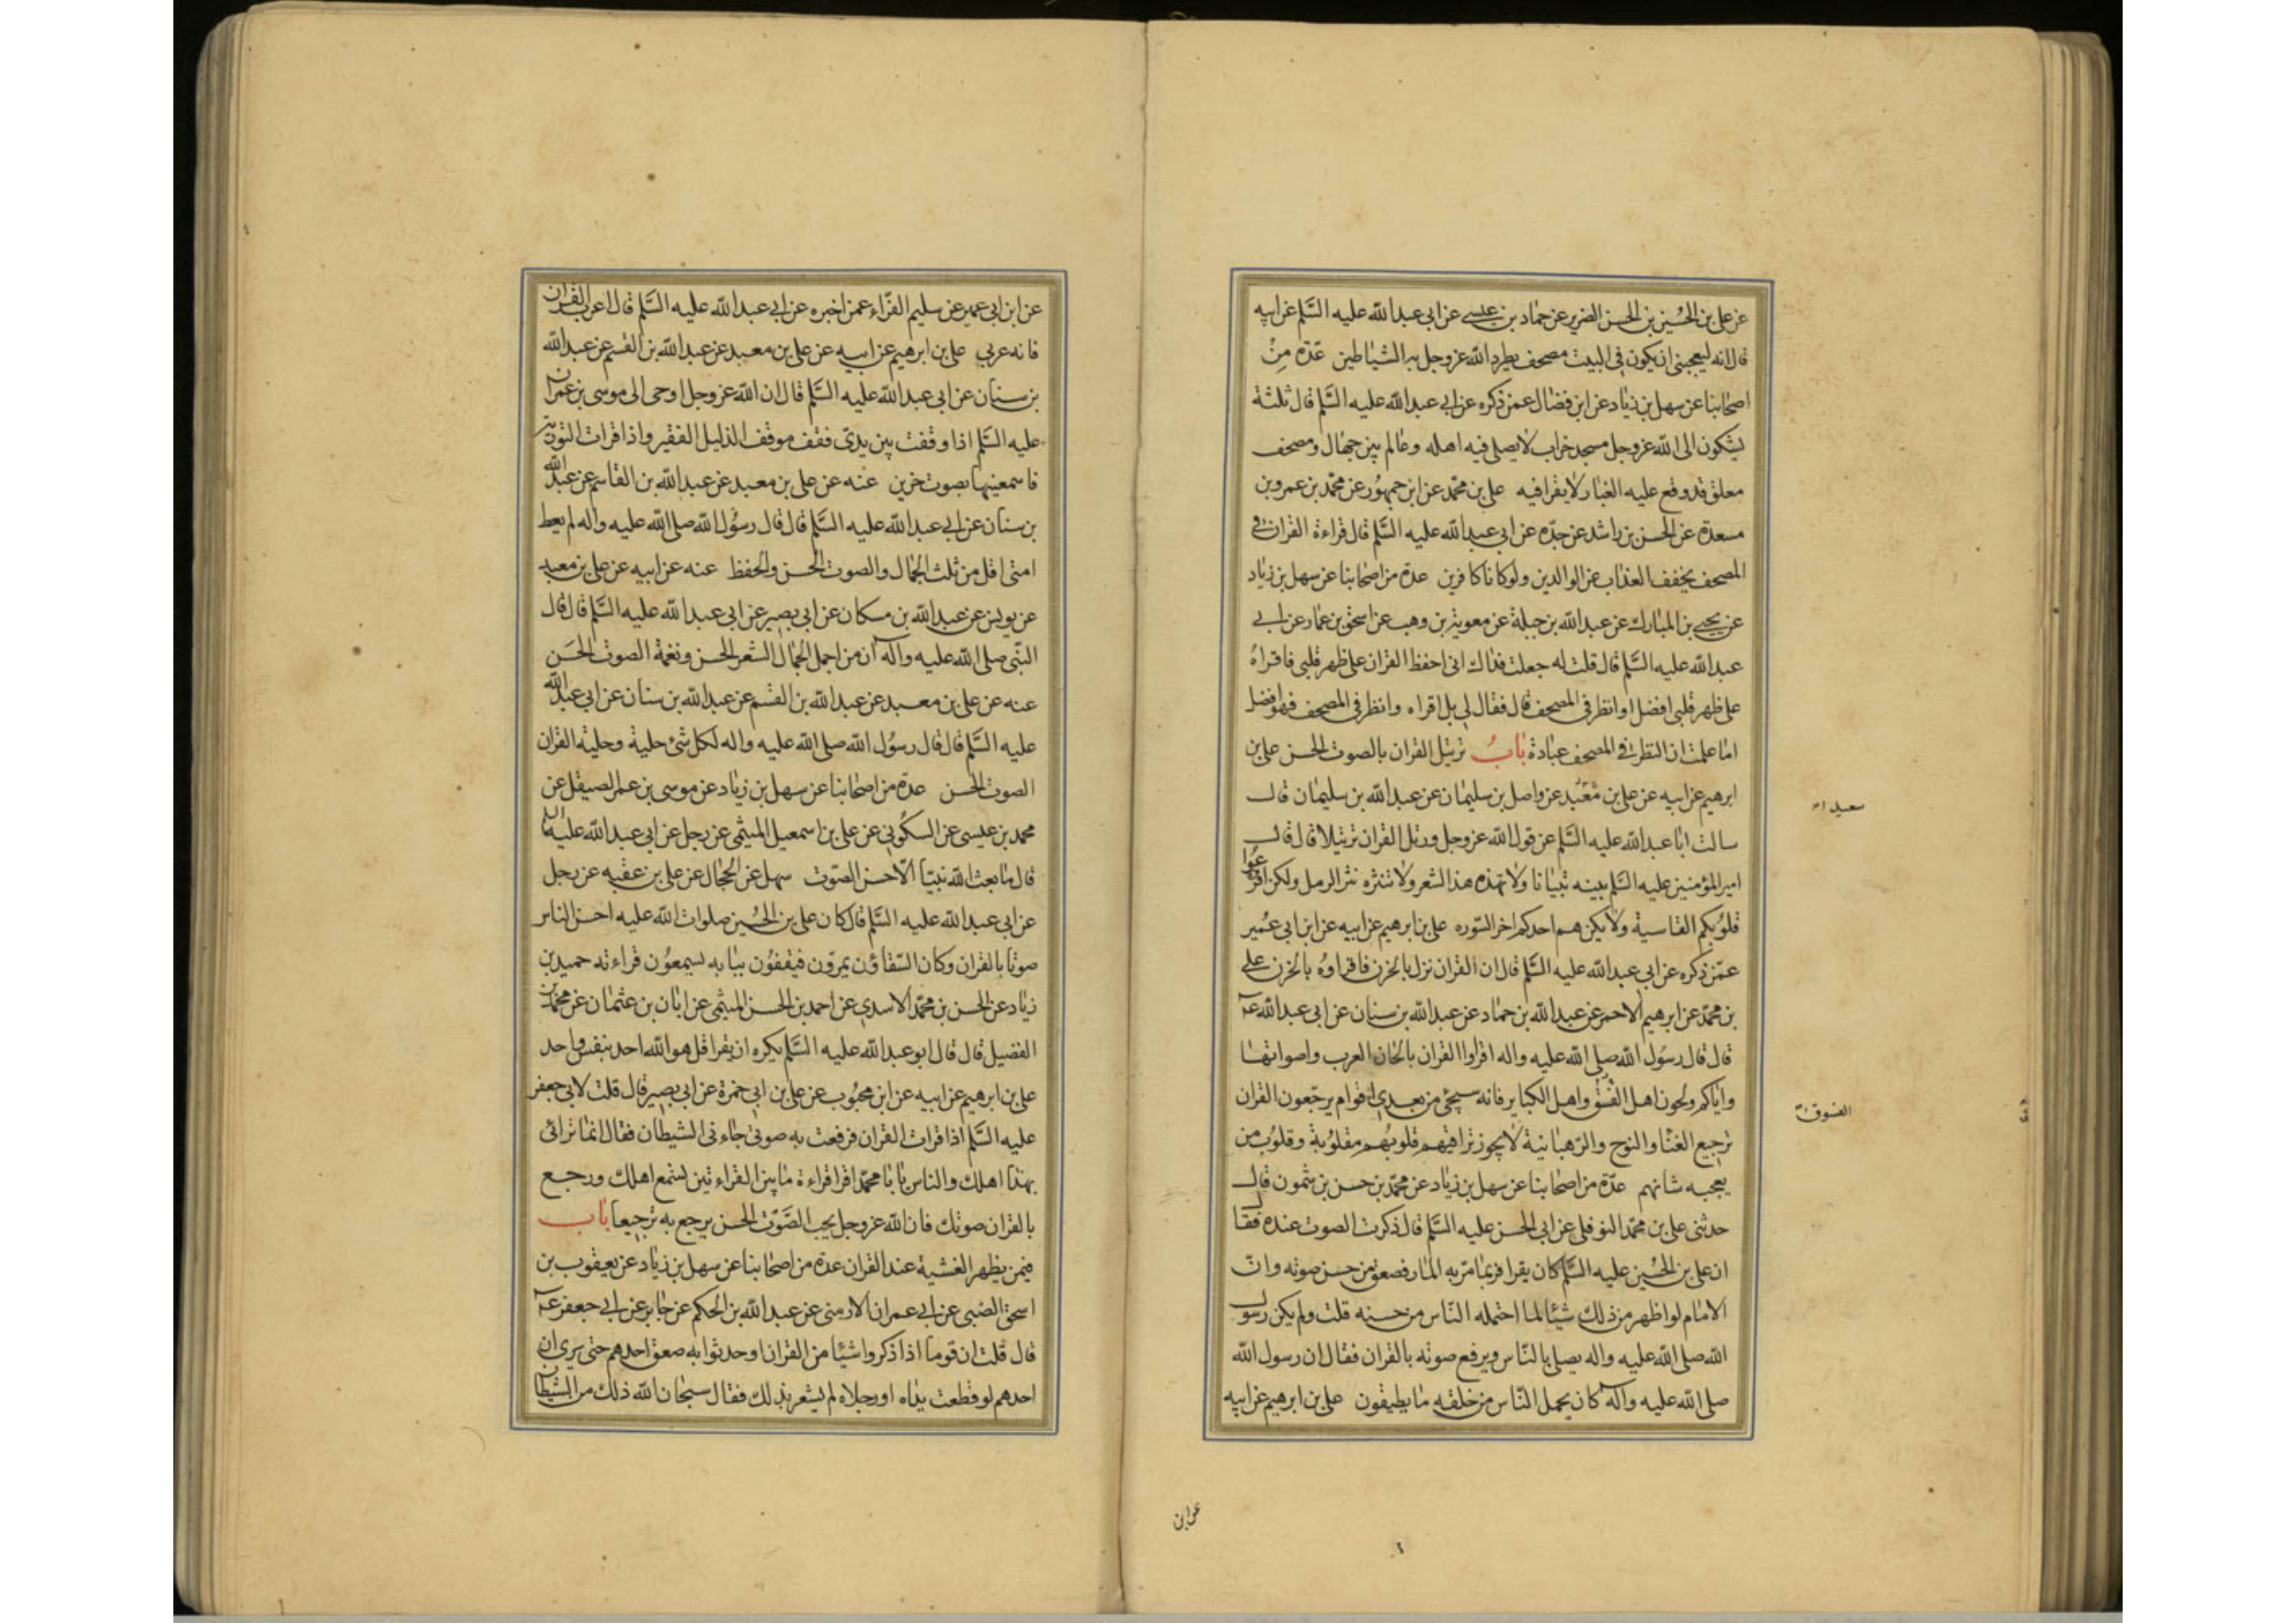 عن علی بن الحُسین بن الحسن الضریر عن حماد بن عیسی عن ابی عبد الله علیه السَّلم عن ابیه
قال انه لیعجبنی ان یکون فی البیت مصحف یطرد الله عز وجل به الشیاطین عدّة مِنْ
اصحابنا عن سهل بن زیاد عن ابن فضال عمن ذکره عن ابی عبد الله علیه السَّلم قال ثلثة
یشکون الی الله عز وجل مسجد خراب لا یصلی فیه اهله وعالم بین جهال ومصحف
معلق قد وقع علیه الغبار لا یقرا فیه علی بن محمّد عن ابن جمهُور عن محمّد بن عمرو بن
مسعدة عن الحسن بن راشد عن جدّه عن ابی عبد الله علیه السَّلم قال قراءة القران فی
المصحف یخفف العذاب عن الوالدین ولو کانا کافرین عدة من اصحابنا عن سهل بن زیاد
عن یحیی بن المبارک عن عبد الله بن جبلة عن معویة بن وهب عن اسحق بن عمار عن ابی
عبد الله علیه السَّلم قال قلت له جعلت فداک انی احفظ القران علی ظهر قلبی فاقراهُ
علی ظهر قلبی افضل او انظر فی المصحف قال فقال لی بل اقراه وانظر فی المصحف فهو افضل
اما علمت ان النظر فی المصحف عبادة بابُ ترتیل القران بالصوت الحسن علی بن
ابرهیم عن ابیه عن علی بن مَعْبَد عن واصل بن سلیمان عن عبد الله بن سلیمان قال
سالت ابا عبد الله علیه السَّلم عن قول الله عز وجل ورتل القران ترتیلا قال قال
امیر المؤمنین علیه السَّلم بینه تبیانا ولا تهذه هذ الشعر ولا تنثره نثر الرمل ولکن افزعوا
قلوُبکم القاسیة ولا یکن هم احدکم اخر السّوره علی بن ابرهیم عن ابیه عن ابن ابی عُمیر
عمّن ذکره عن ابی عبد الله علیه السَّلم قال ان القران نزل بالحزن فاقراوهُ بالحزن علی
بن محمّد عن ابرهیم الاحمر عن عبد الله بن حماد عن عبد الله بن سنان عن ابی عبد الله عه
قال قال رسَول الله صلی الله علیه واله اقراوا القران بالحان العرب واصواتها
وایاکم ولحون اهل الفسْق واهل الکبایر فانه سیجئ من بعدی اقوام یرجّعون القران
ترجیع الغنا والنوح والرّهبانیة لا یجوز تراقیهم قلوبُهم مقلوُبة وقلوُب من
یعجبه شانهم عدّة من اصحابنا عن سهل بن زیاد عن محمّد بن حسن بن شمون قال
حدثنی علی بن محمّد النوفلی عن ابی الحسن علیه السَّلم قال ذکرت الصوت عنده فقال
ان علی بن الحُسین علیه السَّلم کان یقرا فربما مرّ به المار فصعق من حسن صوته وانّ
الامام لو اظهر من ذلک شیئا لما احتمله النّاس من حسنه قلت ولم یکن رسول
الله صلی الله علیه واله یصلی بالنّاس ویرفع صوته بالقران فقال ان رسول الله
صلی الله علیه واله کان یحمل النّاس من خلقه ما یطیقون علی بن ابرهیم عن ابیه
سعید
الفسوق
عن ابن
عن ابن ابی عمیر عن سلیم الفرّاء عمن اخبره عن ابی عبد الله علیه السَّلم قال اعرب القران
فانه عربی علی بن ابرهیم عن ابیه عن علی بن معبد عن عبد الله بن القسم عن عبد الله
بن سنان عن ابی عبد الله علیه السَّلم قال ان الله عز وجل اوحی الی موسی بن عمران
علیه السَّلم اذا وقفت بین یدیّ فقف موقف الذلیل الفقیر واذا قرات التوریة
فاسمعنیها بصوت حزین عنه عن علی بن معبد عن عبد الله بن القاسم عن عبد الله
بن سنان عن ابی عبد الله علیه السَّلم قال قال رسُول الله صلی الله علیه واله لم یعط
امتی اقل من ثلث الجمال والصوت الحسن والحفظ عنه عن ابیه عن علی بن معبد
عن یونس عن عبد الله بن مسکان عن ابی بصیر عن ابی عبد الله علیه السَّلم قال قال
النّبی صلی الله علیه واله ان من اجمل الجمال الشعر الحسن ونغمة الصوت الحسَن
عنه عن علی بن معبد عن عبد الله بن القسم عن عبد الله بن سنان عن ابی عبد الله
علیه السَّلم قال قال رسوُل الله صلی الله علیه واله لکل شئ حلیة وحلیة القران
الصوت الحسن عدة من اصحابنا عن سهل بن زیاد عن موسی بن عمر الصیقل عن
محمد بن عیسی عن السکوُنی عن علی بن اسمعیل المیثمی عن رجل عن ابی عبد الله علیه السلم
قال ما بعث الله نبیّا الّا حسن الصّوت سهل عن الحجال عن علی بن عقبه عن رجل
عن ابی عبد الله علیه السَّلم قال کان علی بن الحُسین صلوات الله علیه احسن الناس
صوتا بالقران وکان السّقاؤن یمرّون فیقفوُن ببابه یسمعوُن قراءته حمید بن
زیاد عن الحسن بن محمّد الاسدی عن احمد بن الحسن المیثمی عن ابان بن عثمان عن محمد بن
الفضیل قال قال ابو عبد الله علیه السَّلم یکره ان یقرا قل هو الله احد بنفس واحد
علی بن ابرهیم عن ابیه عن ابن محبُوب عن علی بن ابی حمزة عن ابی بصیر قال قلت لابی جعفر
علیه السَّلم اذا قرات القران فرفعت به صوتی جاءنی الشیطان فقال انما ترائی
بهذا اهلک والناس یا با محمّد اقرا قراءة ما بین القراءتین تسمع اهلک ورجع
بالقران صوتک فان الله عز وجل یحب الصَّوت الحسن یرجع به ترجیعا باب
فیمن یظهر الغشیة عند القران عدة من اصحابنا عن سهل بن زیاد عن یعقوب بن
اسحق الضبی عن ابی عمران الارمنی عن عبد الله بن الحکم عن جابر عن ابی جعفر عه
قال قلت ان قوما اذا ذکروا شیئا من القران او حدثوا به صعق احدهم حتی یری ان
احدهم لو قطعت یداه او رجلاه لم یشعر بذلک فقال سبحان الله ذلک من الشیطان